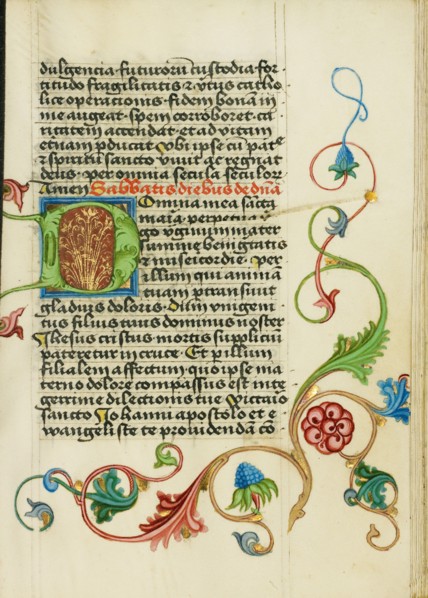 dulgencia · futurorū custodia · for
titudo fragilitatis & v̄tus catho
lice operacionis · fidem bonam in
me augeat · spem corroboret · ca
ritatem accendat · et ad vitam
et̄nam p̄ducat Vbi ipse cū patr̄
& spiritu sancto viuit ac regnat
deus · per omnia secula seculor̄
Amen Sabbatis diebus de dn̄a
Domina mea sancta
maria perpetua v
go v̄gīnū mater
summe benignitatis
& misericordie · per
illum qui animā
tuam p̄transiuit
gladius doloris · Dum vnigeni
tus filius tuus dominus noster
Ihesus cristus mortis supplicium
pateretur in cruce · Et p̄ illum
filialem affectum quo ipse ma
terno dolore compassus est inte
gerrime dilectionis tue
sancto Iohanni apostolo et e
wangeliste te prouidendā cō